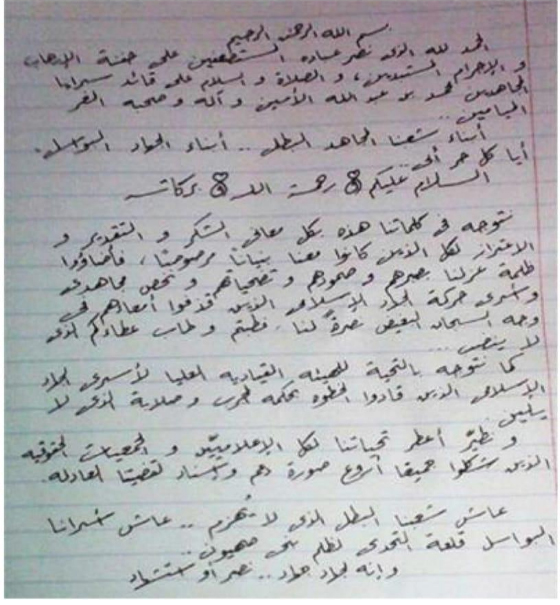 بسم الله الرحمن الرحيم
الحمد لله الذي نصر عباده المستضعفين على حفنة الإرهاب
و الإجرام المستبدين، و الصلاة و السلام على قائد سرايا
المجاهدين محمد بن عبد الله الأمين و آله و صحبه الغر
الميامين..
أبناء شعبنا المجاهد البطل .. أبناء الجهاد البواسل.
أيا كل حر أبي..
السلام عليكم و رحمة الله و بركاته
نتوجه في كلماتنا هذه بكل معاني الشكر و التقدير و
الاعتزاز لكل الذين كانوا معنا بنياناً مرصوصاً، فأضاؤوا
ظلمة عزلنا بصبرهم و صمودهم و تضحياتهم و نخص مجاهدي
وأسرى حركة الجهاد الإسلامي الذين قذفوا أمعاءهم في
وجه السجان البغيض نصرة لنا. فطبتم و طاب عطاؤكم الذي
لا ينضب ...
كما نتوجه بالتحية للهيئة القيادية العليا لأسرى الجهاد
الإسلامي الذين قادوا الخطوة بحكمة المجرب و صلابة الذي لا
يلين
و نطيّر أعطر تحياتنا لكل الإعلاميين و الجمعيات الحقوقية
الذين شكلوا جميعا أروع صورة دعم وإسناد لقضيتنا العادلة.
عاش شعبنا البطل الذي لا تُهزم .. عاش أسرانا
البواسل قلعة التحدي لظلم بني صهيون..
و إنه لجهاد جهاد .. نصر أو استشهاد